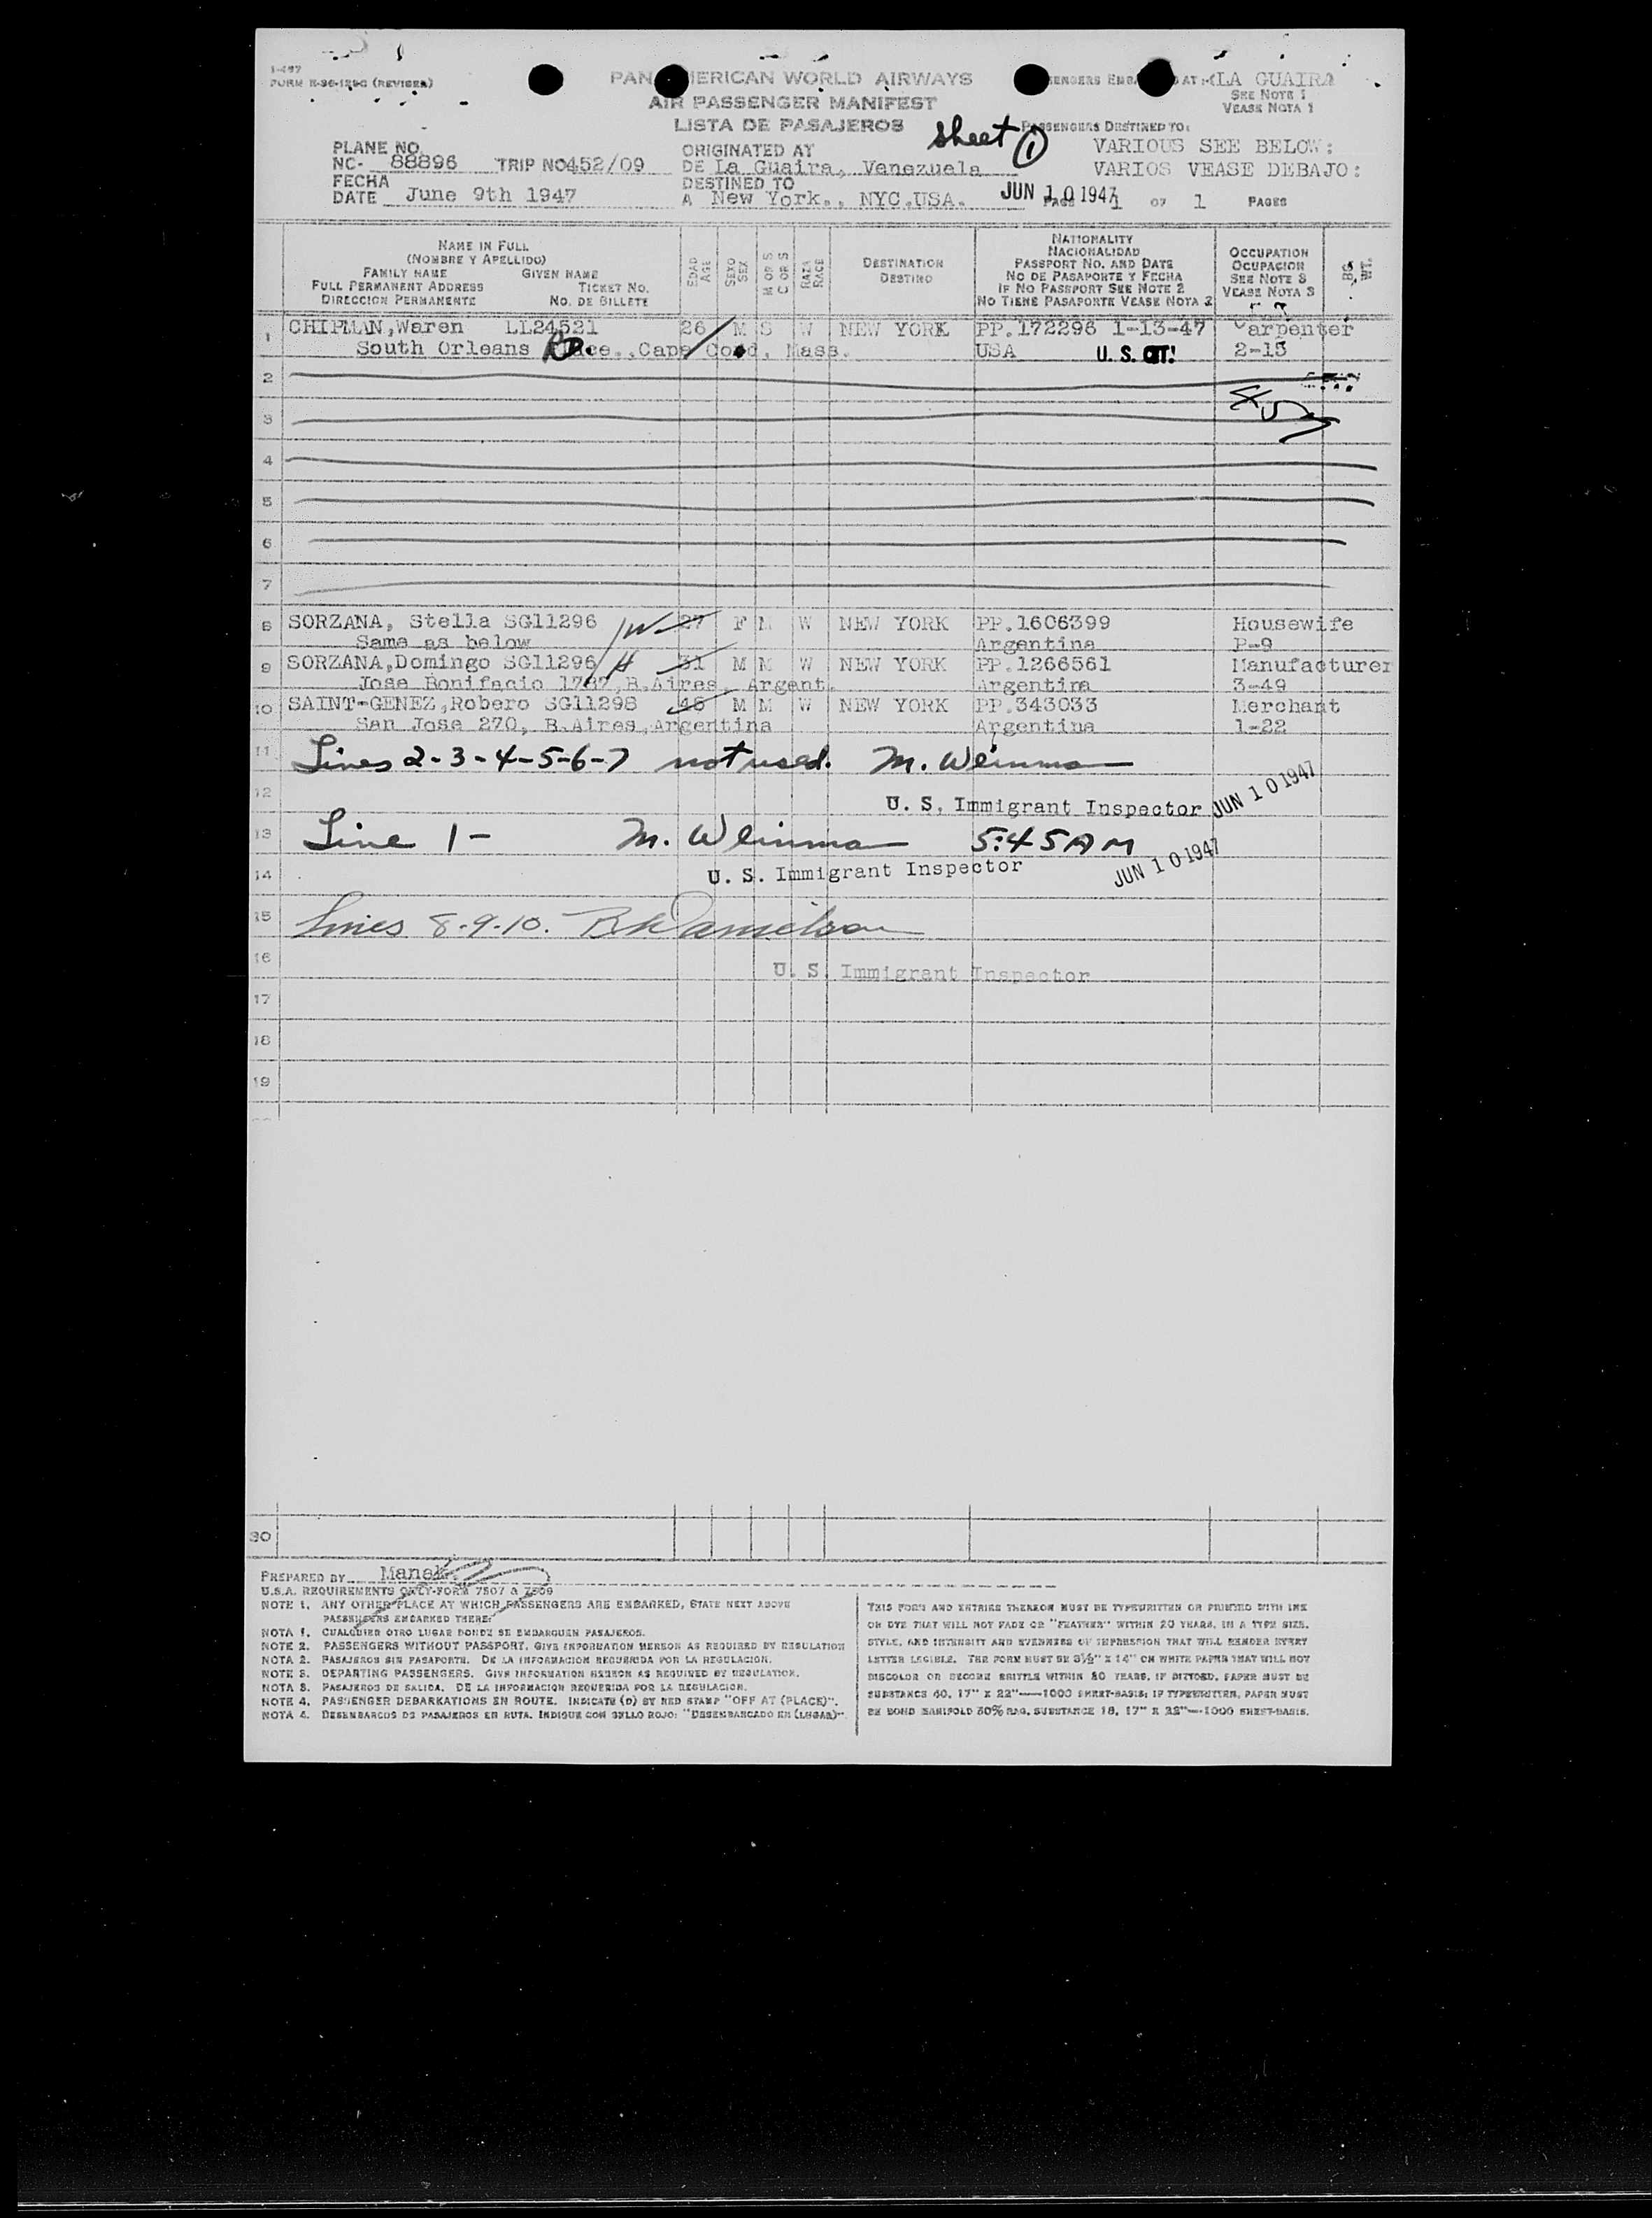 I-467
FORM R-36-129-G (REVISED)
PAN AMERICAN WORLD AIRWAYS
AIR PASSENGER MANIFEST
LISTA DE PASAJEROS
Sheet 1
AT: LA GUAIRA
SEE NOTE 1
VEASE NOTA 1
PASSENGERS DESTINED TO:
VARIOUS SEE BELOW:
VARIOS VEASE DEBAJO:
PLANE NO.
NC- 88896 TRIP NO 452/09
FECHA
DATE June 9th 1947
ORIGINATED AT
DE La Guaira, Venezuela
DESTINED TO
A New York., NYC.USA.
JUN 10 1947
PAGE 1 OF 1 PAGES
NAME IN FULL
(NOMBRE Y APELLIDO)
FAMILY NAME GIVEN NAME
FULL PERMANENT ADDRESS TICKET NO.
DIRECCION PERMANENTE NO. DE BILLETE
EDAD AGE
SEXO SEX
M OR S C OR S
RAZA RACE
DESTINATION
DESTINO
NATIONALITY
NACIONALIDAD
PASSPORT NO. AND DATE
NO DE PASAPORTE Y FECHA
IF NO PASSPORT SEE NOTE 2
NO TIENE PASAPORTE VEASE NOTA 2
OCCUPATION
OCUPACION
SEE NOTE 3
VEASE NOTA 3
BG. WT.
1 CHIPMAN,Waren LL24521 26 M S W NEW YORK PP.172296 1-13-47 Carpenter
South Orleans , Cape Cod, Mass. USA U. S. CIT. 2-13
2
3
4
5
6
7
8 SORZANA, Stella SG11296 W 27 F M W NEW YORK PP.1606399 Housewife
Same as below Argentina P-9
9 SORZANA,Domingo SG11296 H 31 M M W NEW YORK PP.1266561 Manufacturer
Jose Bonifacio 1787,B.Aires, Argent. Argentina 3-49
10 SAINT-GENEZ,Robero SG11298 46 M M W NEW YORK PP.343033 Merchant
San Jose 270, B.Aires,Argentina Argentina 1-22
11 Lines 2-3-4-5-6-7 not used. M. Weinman
12 U. S. Immigrant Inspector JUN 10 1947
13 Line 1 - M. Weinman 5:45 AM
14 U. S. Immigrant Inspector JUN 10 1947
15 Lines 8-9-10. Danielson
16 U. S. Immigrant Inspector
17
18
19
30
PREPARED BY
U.S.A. REQUIREMENTS ONLY-FORM 7507 & 7509
NOTE 1. ANY OTHER PLACE AT WHICH PASSENGERS ARE EMBARKED, STATE NEXT ABOVE
PASSENGERS EMBARKED THERE:
NOTA 1. CUALQUIER OTRO LUGAR DONDE SE EMBARQUEN PASAJEROS.
NOTE 2. PASSENGERS WITHOUT PASSPORT. GIVE INFORMATION HEREON AS REQUIRED BY REGULATION
NOTA 2. PASAJEROS SIN PASAPORTE. DE LA INFORMACION REQUERIDA POR LA REGULACION.
NOTE 3. DEPARTING PASSENGERS. GIVE INFORMATION HEREON AS REQUIRED BY REGULATION.
NOTA 3. PASAJEROS DE SALIDA. DE LA INFORMACION REQUERIDA POR LA REGULACION.
NOTE 4. PASSENGER DEBARKATIONS EN ROUTE. INDICATE (D) BY RED STAMP "OFF AT (PLACE)".
NOTA 4. DESEMBARCOS DE PASAJEROS EN RUTA. INDIQUE CON SELLO ROJO: "DESEMBARCADO EN (LUGAR)".
THIS FORM AND ENTRIES THEREON MUST BE TYPEWRITTEN OR PRINTED WITH INK
OR DYE THAT WILL NOT FADE OR "FEATHER" WITHIN 20 YEARS, IN A TYPE SIZE,
STYLE, AND INTENSITY AND EVENNESS OF IMPRESSION THAT WILL RENDER EVERY
LETTER LEGIBLE. THE FORM MUST BE 8½" X 14" ON WHITE PAPER THAT WILL NOT
DISCOLOR OR BECOME BRITTLE WITHIN 20 YEARS. IF DITTOED, PAPER MUST BE
SUBSTANCE 40, 17" X 22"—1000 SHEET-BASIS; IF TYPEWRITTEN, PAPER MUST
BE BOND MANIFOLD 50% RAG, SUBSTANCE 18, 17" X 22"—1000 SHEET-BASIS.